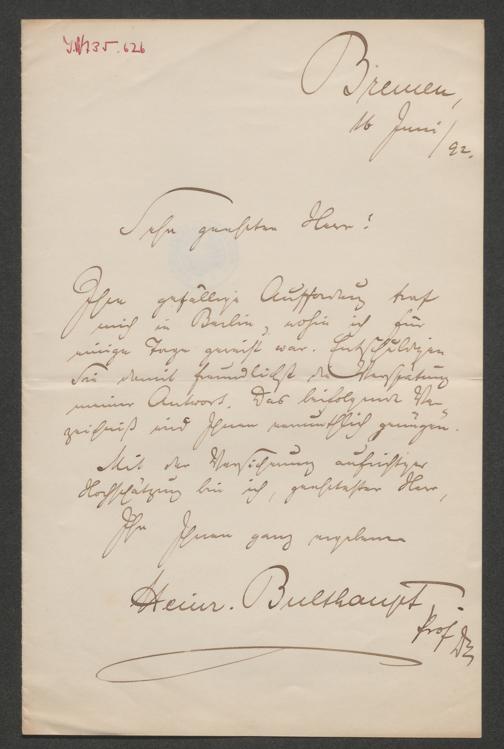 I.N. 135.626
Bremen,
16 Juni/92.
Sehr geehrter Herr!
Ihre gefällige Aufforderung traf
mich in Berlin, wohin ich für
einige Tage gereist war. Entschuldigen
Sie damit freundlichst die Verspätung
meiner Antwort. Das beifolgende Ver-
zeichniß wird Ihnen vermuthlich genügen.
Mit der Versicherung aufrichtiger
Hochschätzung bin ich, geehrtester Herr,
Ihr Ihnen ganz ergebener
Heinr. Bulthaupt.
Prof Dr